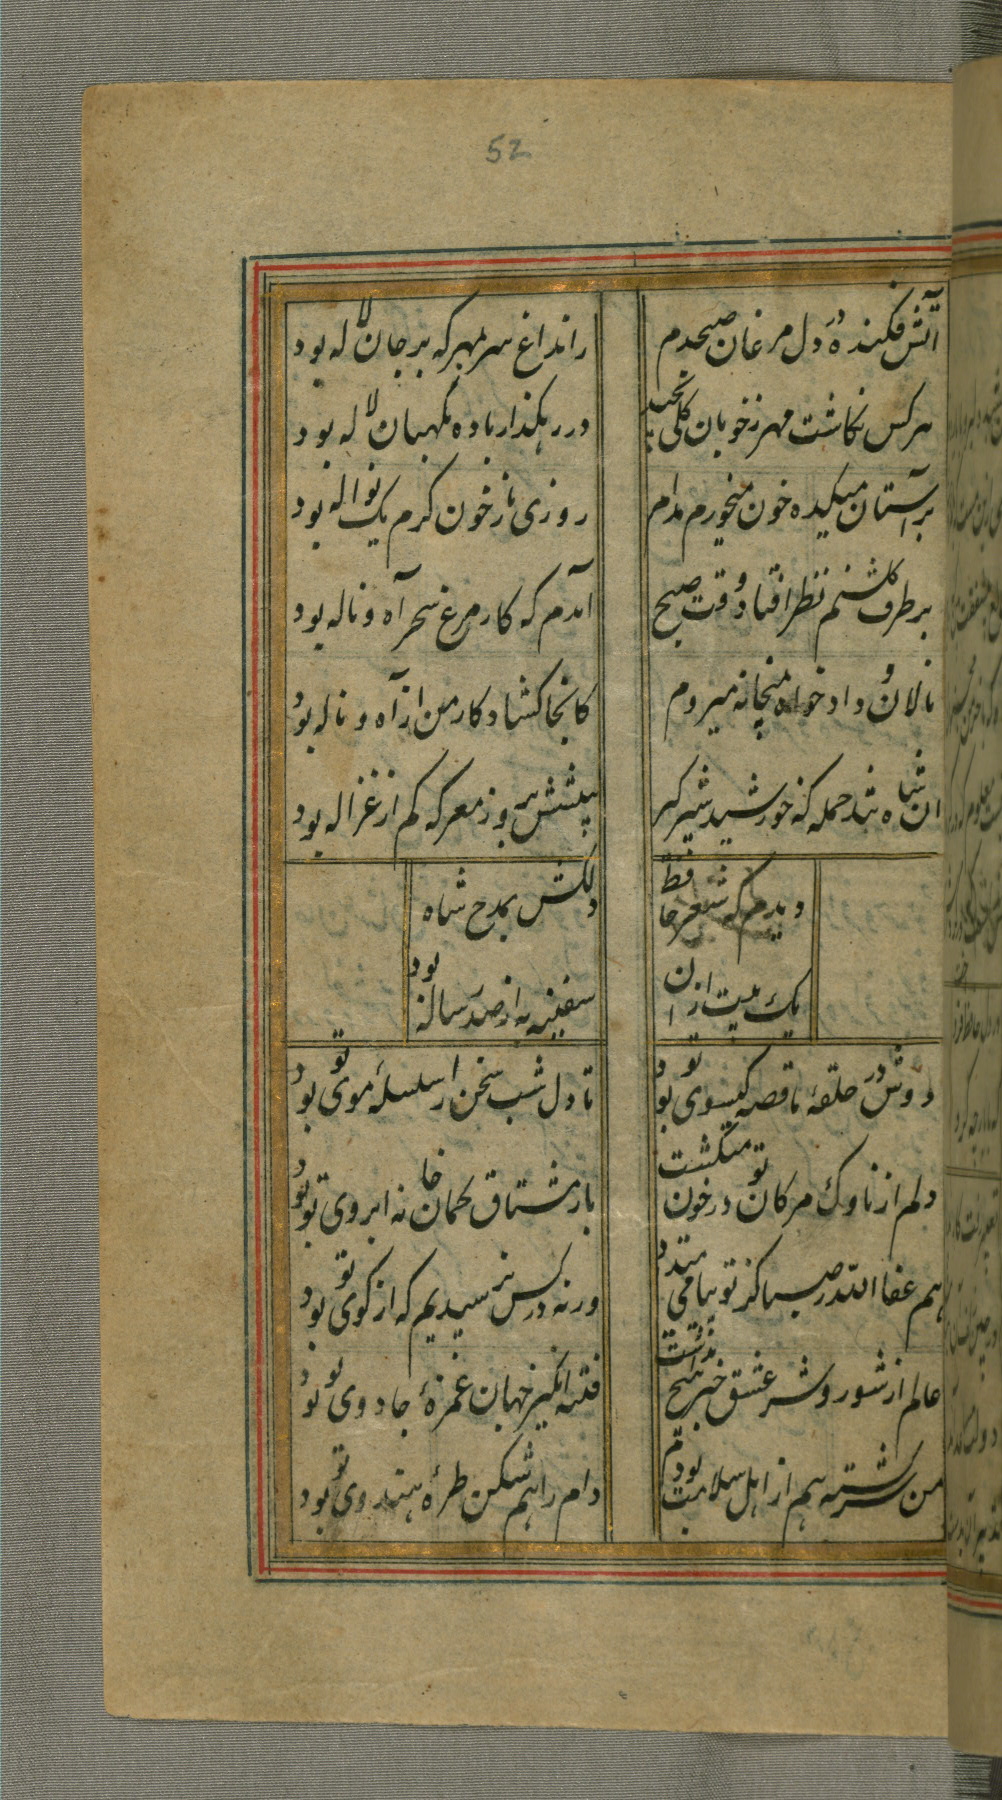 52
آتش فکنده در دل مرغان صبحدم
رانداغ سر بمهر که بر جان لاله بود
هر کس نکاشت مهر ز خوبان کلی نچید
در رهکذار باده نکهبان لاله بود
بر آستان میکده خون میخورم مدام
روزی ما ز خون کرم یک نواله بود
بر طرف کلشنم نظر افتاد وقت صبح
آندم که کار مرغ سحر آه و ناله بود
نالان و دادخواه بمیخانه میروم
کانجا کشاد کار من از آه و ناله بود
ان شاه تند حمله که خورشید شیر کیر
پیشش بروز معرکه کم از غزاله بود
دیدم که شعر حافظ
دلکش بمدح شاه
یک بیت از ان
سفینه به از صد رساله بود
دوش در حلقهٔ ما قصه کیسوی تو بود
تا دل شب سخن از سلسلهٔ موی تو بود
دلم از ناوک مژکان تو در خون میکشت
باز مشتاق کمان خانه ابروی تو بود
هم عفا الله ز صبا کز تو پیامی میداد
ورنه در کس نرسیدیم که از کوی تو بود
عالم از شور و شر عشق خبر هیچ نداشت
فتنه انکیز جهان غمزهٔ جادوی تو بود
من سرکشته هم از اهل سلامت بودم
دام راهم شکن طرهٔ هندوی تو بود